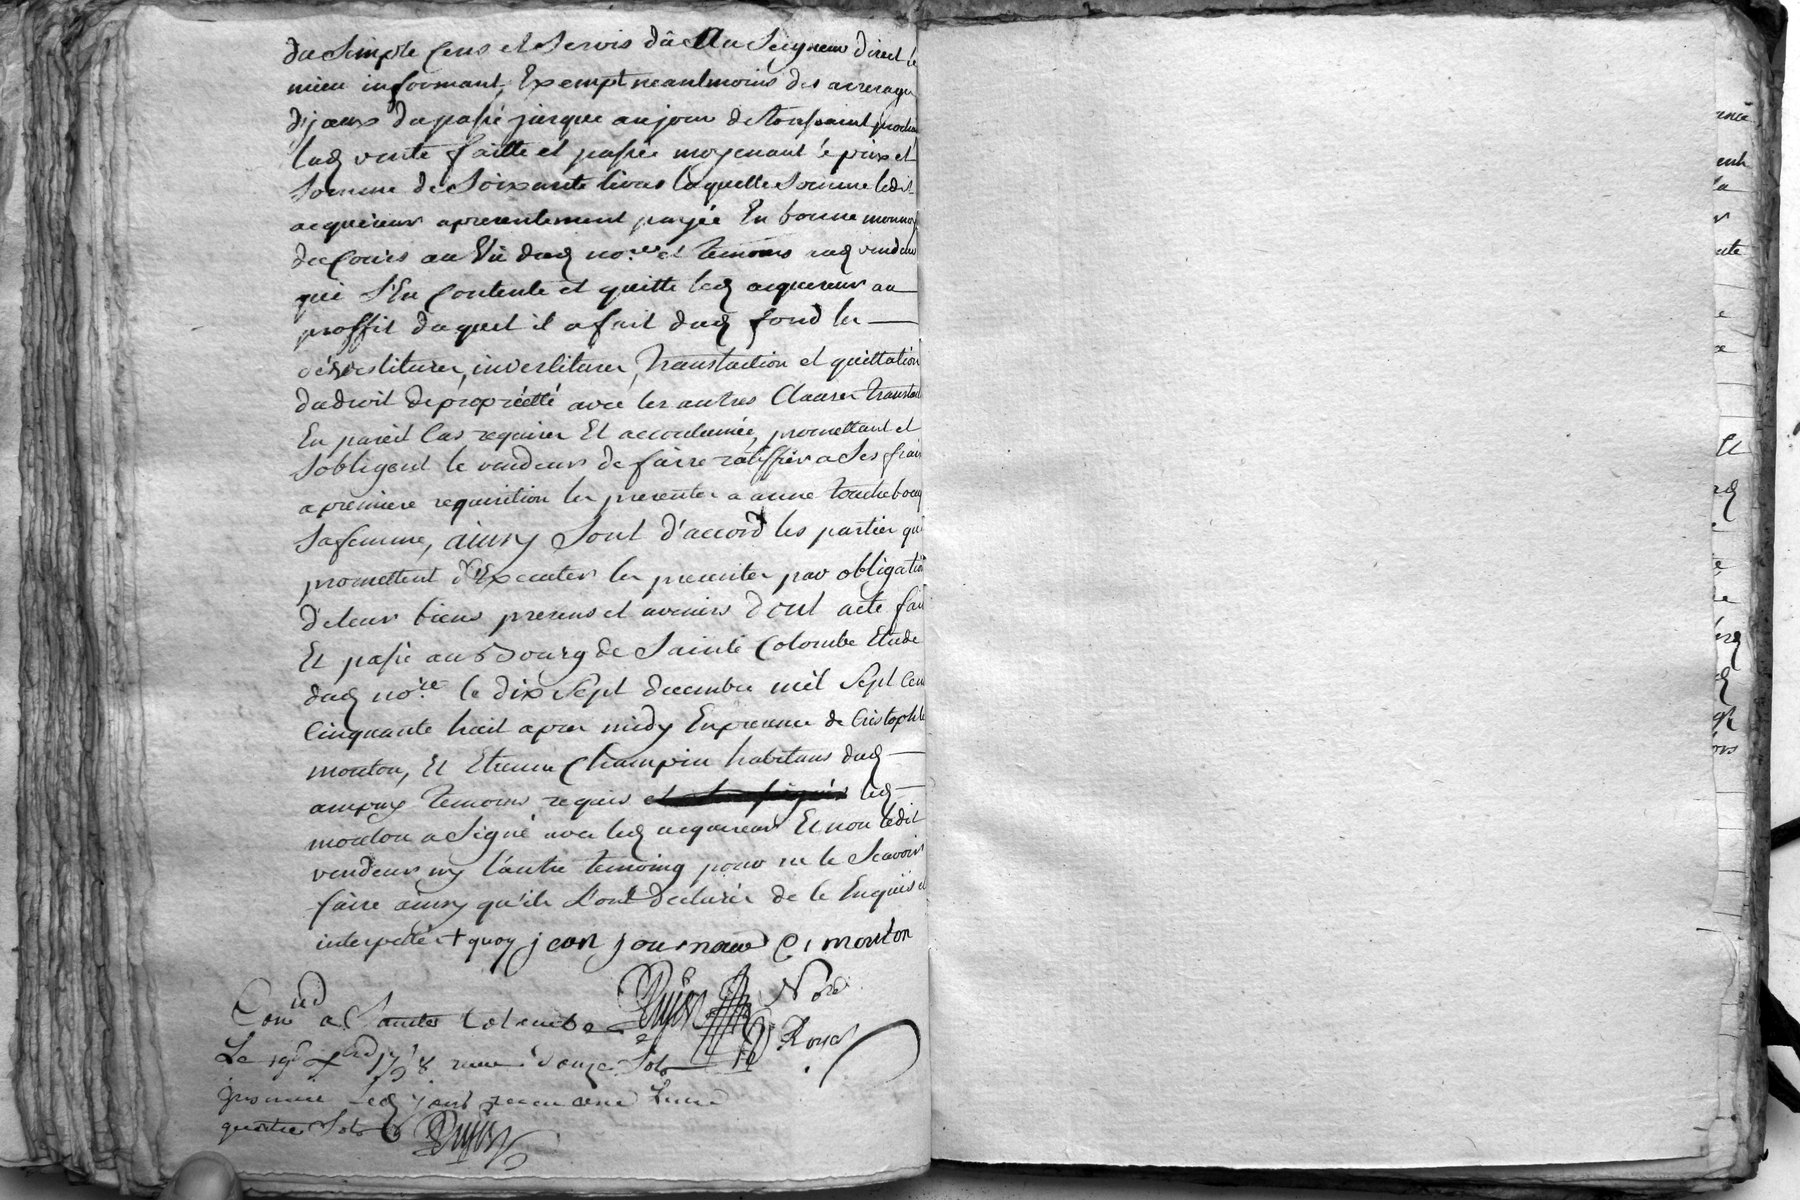 du simple cens et servis dû Au Seigneur direct le
mieu informant, Exempt neantmoins des arrerages
d'jceux du passé jusque au jour de toussaint prochai
lad vente faitte et passée moyenant le prix et
somme de soixante livres laquelle somme ledit
acquéreur a presentement payée En bonne monnoy
de cours au Vû dud no.re et temoins aud vendeur
qui s'En contente et quitte led acquereur au
proffit duquel il a fait dud fond les
dévestitures, investitures, translaction et quittation
du droit de propriétté avec les autres Clauses translat
En pareil Cas requises Et accoutumée, promettant et
s'obligent le vendeur de faire ratiffier a Ses frais
a premiere requisition les presentes a anne touchebouq
sa femme, ainsy sont d'accord les parties qui
promettent d'Executer les presentes par obligation
de leur biens presens et avenirs dont acte fait
Et passé au Bourg de Sainte Colombe Etude
dud no.re le dix sept decembre mil sept cent
Cinquante huit apres midy En presence de Cristophle
mouton, Et Etienne Champin habitans dud
ampuy temoins requis led
mouton a signé avec led acquereur Et non ledit
vendeur ny l'autre temoing pour ne le Scavoir
faire ainsy qu'ils l'ont declarés de le Enquis et
interpellés + quoy jean journoud C, mouton
No.re
Royal
Con a Sainte Colombe
Le 19e Xbre 1758 reçu douze sols
led jour reçu
quatre sols